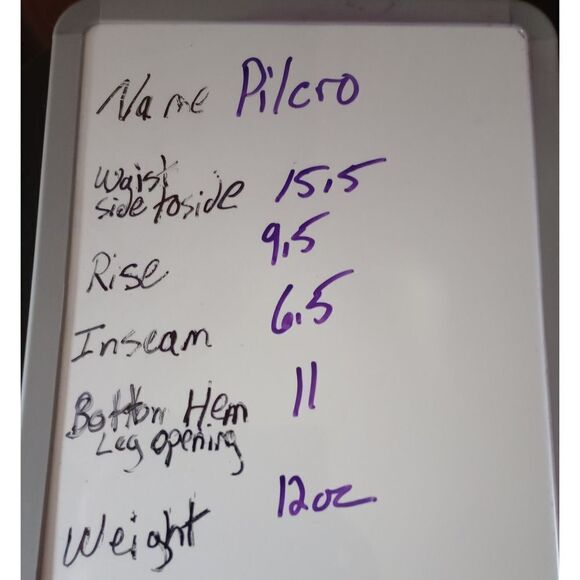 Name Pilcro
Waist
side to side 15.5
Rise 9.5
Inseam 6.5
Bottom Hem 11
Leg opening
Weight 12oz